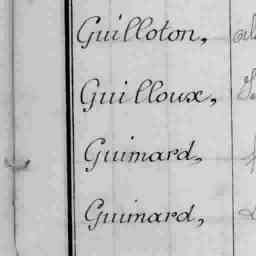 Guilloton,
Guilloux,
Guimard,
Guimard,